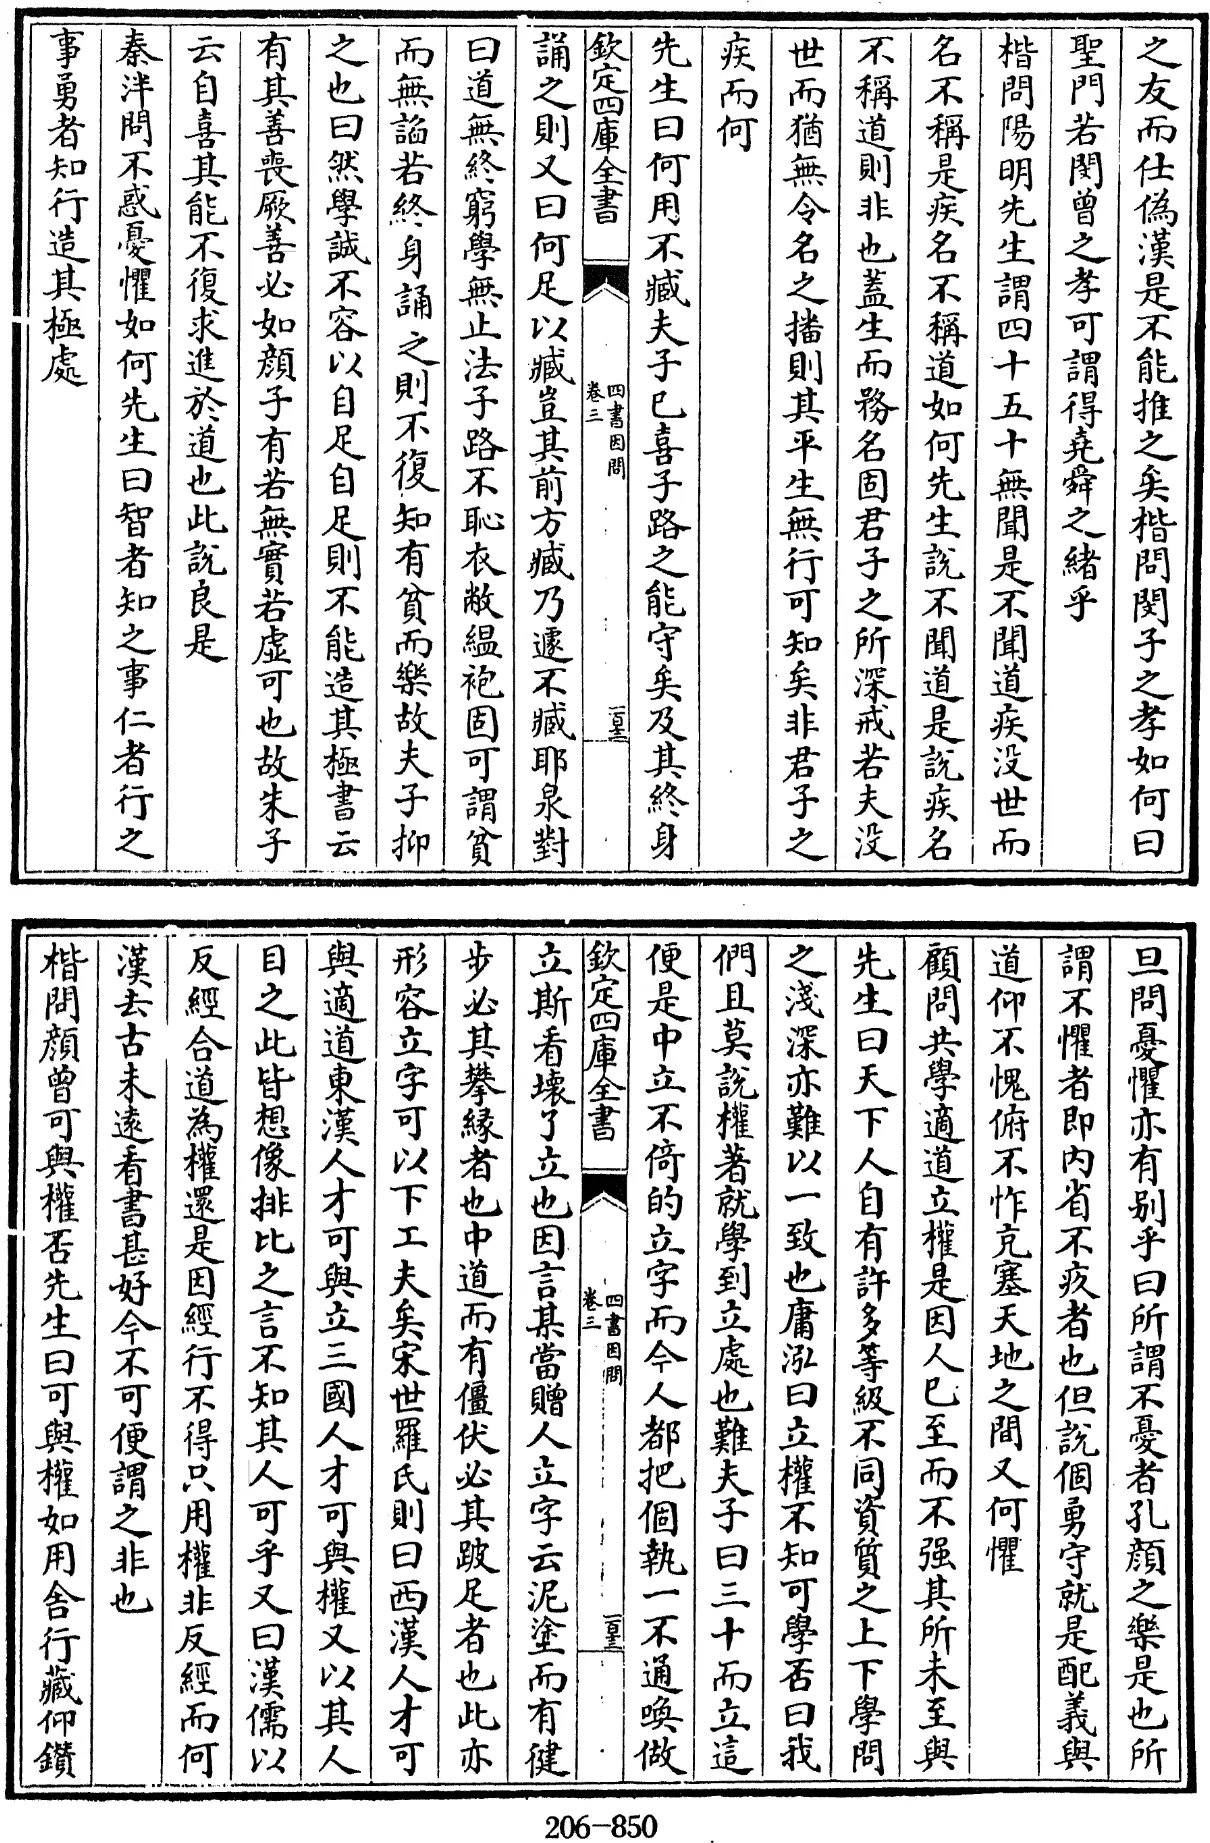 之友而仕偽漢是不能推之矣楷問閔子之孝如何曰
聖門若閔曾之孝可謂得堯舜之緒乎
楷問陽明先生謂四十五十無聞是不聞道疾没世而
名不稱是疾名不稱道如何先生說不聞道是說疾名
不稱道則非也蓋生而務名固君子之所深戒若夫没
世而猶無令名之播則其平生無行可知矣非君子之
疾而何
先生曰何用不臧夫子已喜子路之能守矣及其終身
欽定四庫全書
四書因問
卷三
誦之則又曰何足以臧豈其前方臧乃遽不臧耶泉對
曰道無終窮學無止法子路不恥衣敝緼袍固可謂貧
而無謟若終身誦之則不復知有貧而樂故夫子抑
之也曰然學誠不容以自足自足則不能造其極書云
有其善喪厥善必如顔子有若無實若虛可也故朱子
云自喜其能不復求進於道也此說良是
秦泮問不惑憂懼如何先生曰智者知之事仁者行之
事勇者知行造其極處
旦問憂懼亦有别乎曰所謂不憂者孔顔之樂是也所
謂不懼者即内省不疚者也但說個勇守就是配義與
道仰不愧俯不怍克塞天地之間又何懼
顧問共學適道立權是因人已至而不强其所未至與
先生曰天下人自有許多等級不同資質之上下學問
之淺深亦難以一致也庸泓曰立權不知可學否曰我
們且莫說權著就學到立處也難夫子曰三十而立這
便是中立不倚的立字而今人都把個執一不通喚做
欽定四庫全書
四書因問
卷三
立斯看壞了立也因言某當贈人立字云泥塗而有健
步必其攀緣者也中道而有僵伏必其跛足者也此亦
形容立字可以下工夫矣宋世羅氏則曰西漢人才可
與適道東漢人才可與立三國人才可與權又以其人
目之此皆想像排比之言不知其人可乎又曰漢儒以
反經合道為權還是因經行不得只用權非反經而何
漢去古未遠看書甚好今不可便謂之非也
楷問顔曾可與權否先生曰可與權如用舍行藏仰鑽
206-850